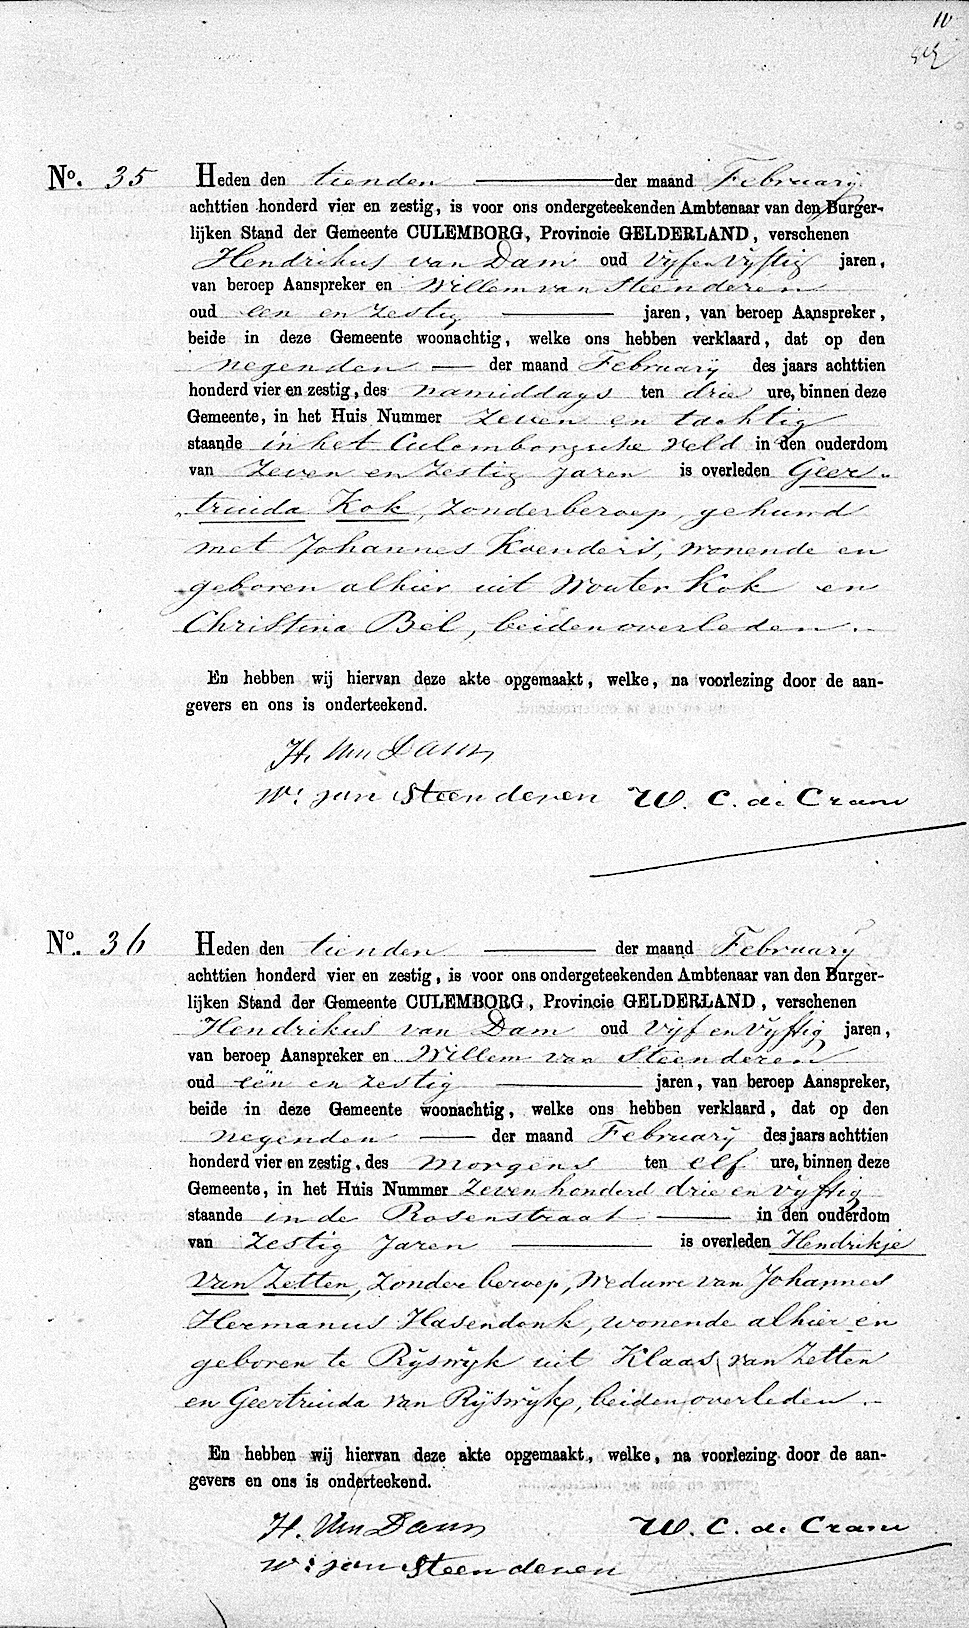 10
No. 35 Heden den tienden der maand February
achttien honderd vier en zestig, is voor ons ondergeteekenden Ambtenaar van den Burger-
lijken Stand der Gemeente CULEMBORG, Provincie GELDERLAND, verschenen
Hendrikus van Dam oud Vijf en Vijftig jaren,
van beroep Aanspreker en Willem van Steenderen
oud een en zestig jaren, van beroep Aanspreker,
beide in deze Gemeente woonachtig, welke ons hebben verklaard, dat op den
negenden der maand February des jaars achttien
honderd vier en zestig, des namiddags ten drie ure, binnen deze
Gemeente, in het Huis Nummer Zeven en tachtig
staande in het Culemborgsche veld in den ouderdom
van Zeven en Zestig Jaren is overleden Geer-
truida Kok, Zonder beroep, gehuwd
met Johannes Koenders, wonende en
geboren alhier uit Wouter Kok en
Christina Bel, beiden overleden.
En hebben wij hiervan deze akte opgemaakt, welke, na voorlezing door de aan-
gevers en ons is onderteekend.
H. Van Dam
W: van Steenderen W. C. de Crane
No. 36 Heden den tienden der maand February
achttien honderd vier en zestig, is voor ons ondergeteekenden Ambtenaar van den Burger-
lijken Stand der Gemeente CULEMBORG, Provincie GELDERLAND, verschenen
Hendrikus van Dam oud Vijf en Vijftig jaren,
van beroep Aanspreker en Willem van Steenderen
oud een en zestig jaren, van beroep Aanspreker,
beide in deze Gemeente woonachtig, welke ons hebben verklaard, dat op den
negenden der maand February des jaars achttien
honderd vier en zestig, des morgens ten elf ure, binnen deze
Gemeente, in het Huis Nummer Zeven honderd drie en vijftig
staande in de Rosenstraat in den ouderdom
van Zestig Jaren is overleden Hendrikje
Van Zetten, Zonder beroep, Weduwe van Johannes
Hermanus Hasendonk, wonende alhier en
geboren te Rijswijk uit Klaas van Zetten
en Geertruida van Rijswijk, beiden overleden.
En hebben wij hiervan deze akte opgemaakt, welke, na voorlezing door de aan-
gevers en ons is onderteekend.
H. Van Dam W. C. de Crane
W: van Steenderen